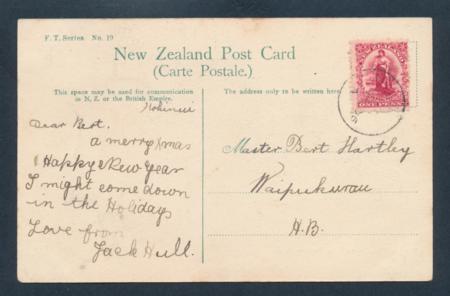 F. T. Series. No. 19
New Zealand Post Card
(Carte Postale.)
This space may be used for communication
in N. Z. or the British Empire.
The address only to be written here.
Dear Bert.
a merry Xmas
& Happy New Year
I might come down
in the Holidays
Love from
Jack Hull.
ZEALAND
ONE PENNY
Master Bert Hartley
Waipukurau
H.B.